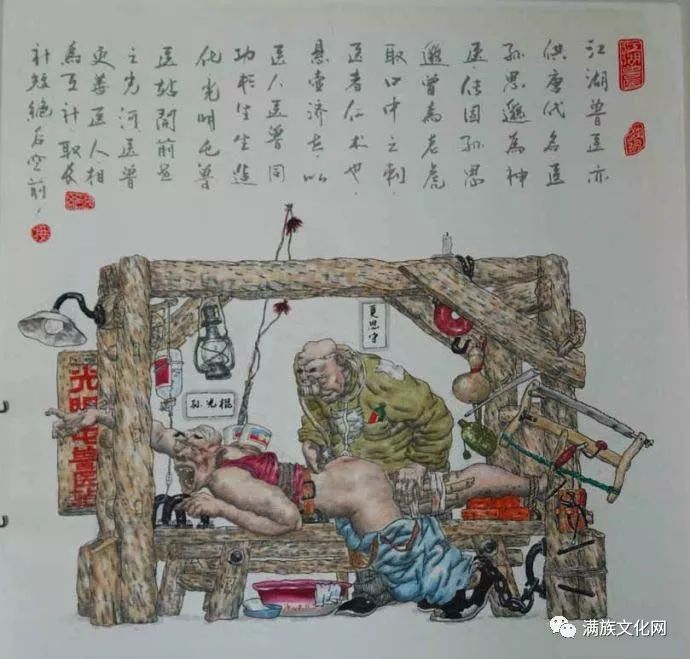 江湖兽医亦
供唐代名医
孙思邈為神
医传因孙思
邈曾為老虎
取口中之刺
医者仁术也
悬壶济世以
医人医兽同
功於生生造
化光明屯兽
医站開前世
之先河医兽
更善医人相
為互补取长
补短绝后空前
光明屯兽医站
孙光棍
满族文化网